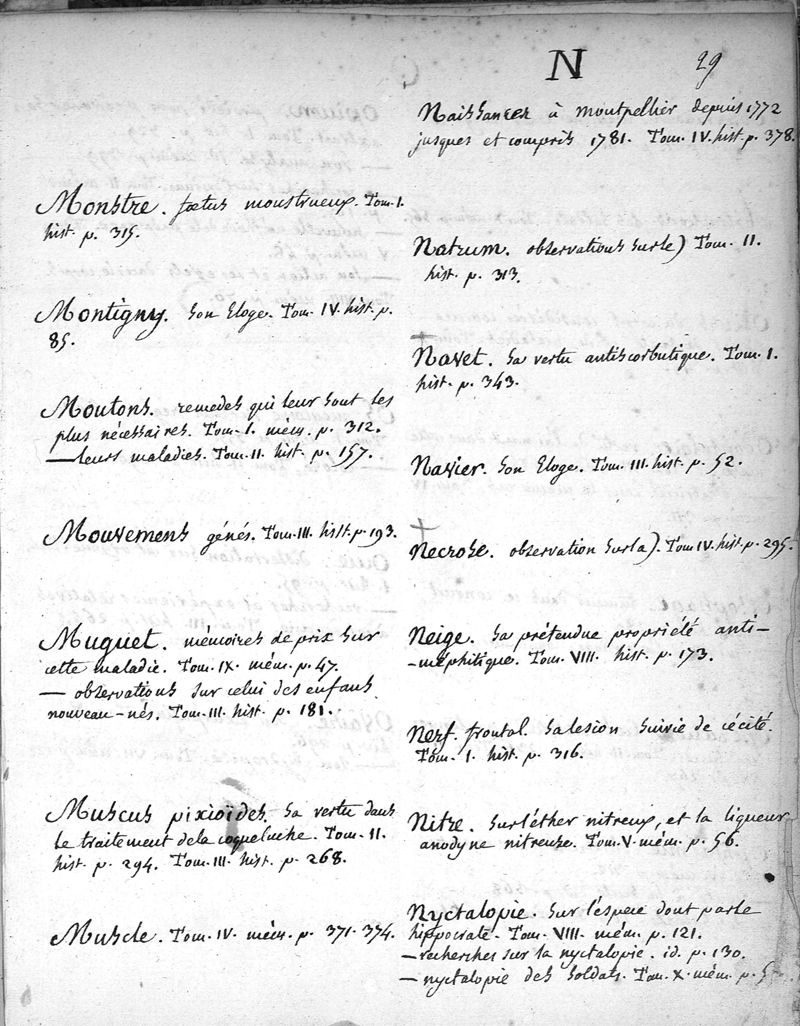 29
Monstre. fœtus monstrueux. Tom. I.
hist. p. 315.
Montigny. Son Eloge. Tom. IV. hist. p.
85.
Moutons. remedes qui leur sont les
plus nécessaires. Tom. I. mém. p. 312.
— leurs maladies. Tom. II. hist. p. 157.
Mouvemens génés. Tom. III. hist. p. 193.
Muguet. mémoires de prix sur
cette maladie. Tom. IX. mém. p. 47.
— observations sur celui des enfans
nouveau-nés. Tom. III. hist. p. 181.
Muscus pixioïdes. Sa vertu dans
le traitement de la coqueluche. Tom. II.
hist. p. 294. Tom. III. hist. p. 268.
Muscle. Tom. IV. mém. p. 371. 374.
N
Naissances à Montpellier depuis 1772
jusques et compris 1781. Tom. IV. hist. p. 378.
Natrum. observations sur le) Tom. II.
hist. p. 313.
+
Navet. Sa vertu antiscorbutique. Tom. I.
hist. p. 343.
Navier. Son Eloge. Tom. III. hist. p. 52.
+
Necrose. observation sur la). Tom IV. hist. p. 295.
Neige. Sa prétendue propriété anti-
-méphitique. Tom. VIII. hist. p. 173.
Nerf frontal. Sa lesion suivie de cécité.
Tom. I. hist. p. 316.
Nitre. Sur l'éther nitreux, et la liqueur
anodyne nitreuse. Tom. V. mém. p. 56.
Nyctalopie. Sur l'espece dont parle
hippocrate. Tom. VIII. mém. p. 121.
— recherches sur la nyctalopie. id. p. 130.
— nyctalopie des soldats. Tom. X. mém. p.